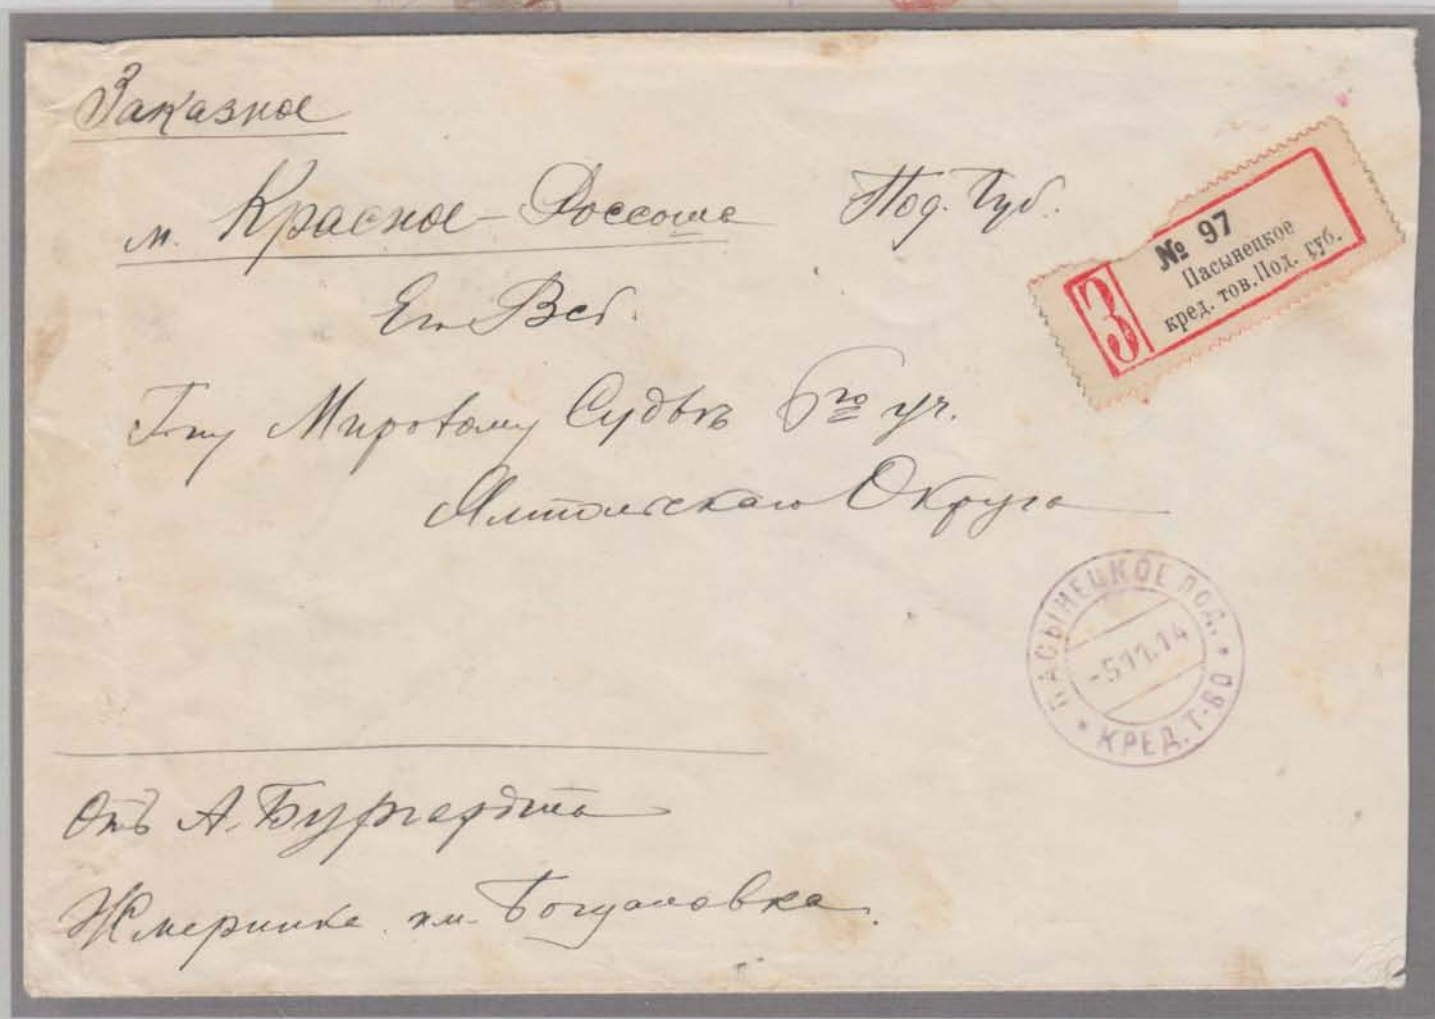 Заказное
м. Красное-Россоше Под. Губ.
Его Всб.
Г-ну Мировому Судьѣ 6го уч.
Округа
№ 97
Пасынецкое
кред. тов. Под. губ.
З
ПАСЫНЕЦКОЕ ПОД.
-511.14
КРЕД. Т-ВО
Отъ А. Бургардта
Жмеринка им. Богдановка.